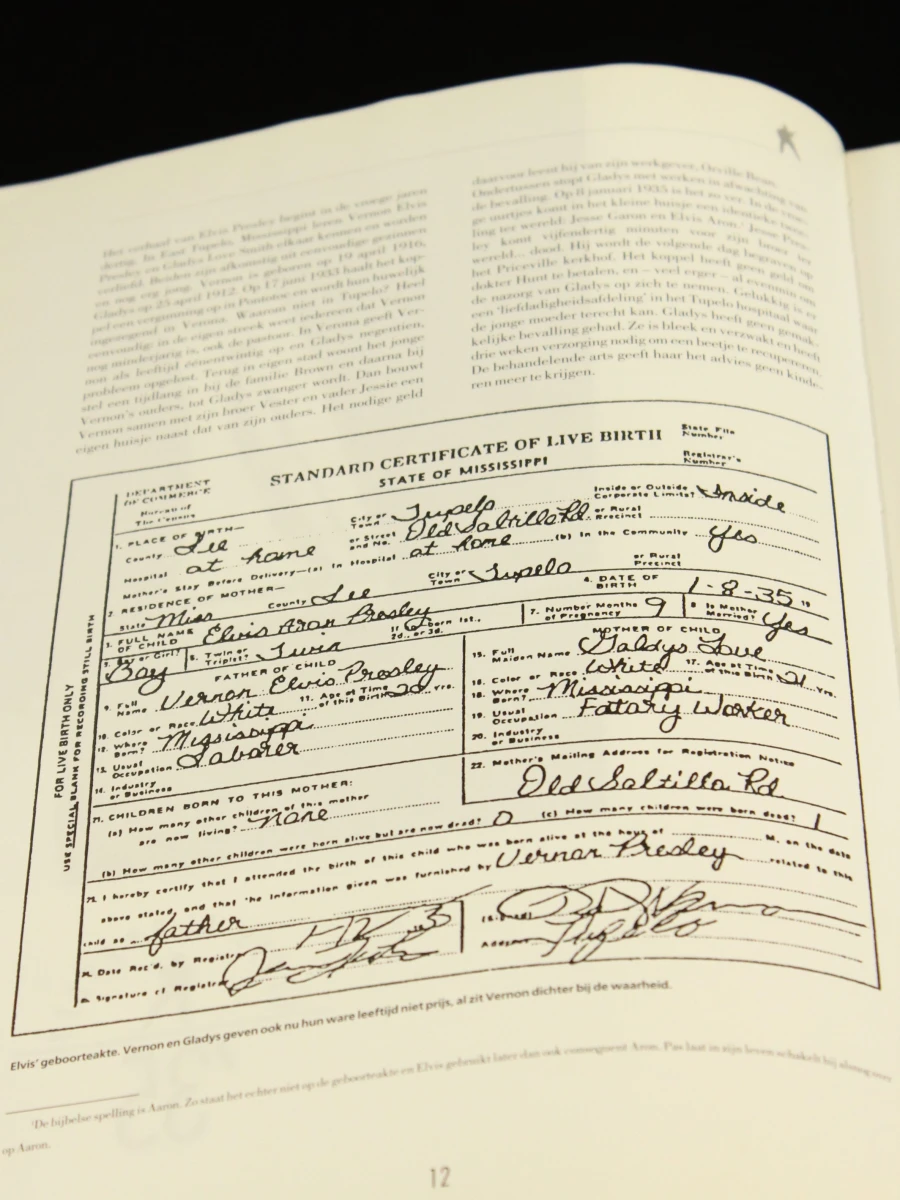 Het verhaal van Elvis Presley begint in de vroege jaren
dertig. In East Tupelo, Mississippi leren Vernon Elvis
Presley en Gladys Love Smith elkaar kennen en worden
verliefd. Beiden zijn afkomstig uit eenvoudige gezinnen
en nog erg jong. Vernon is geboren op 19 april 1916,
Gladys op 25 april 1912. Op 17 juni 1933 haalt het kop-
pel een vergunning op in Pontotoc en wordt hun huwelijk
ingezegend in Verona. Waarom niet in Tupelo? Heel
eenvoudig: in de eigen streek weet iedereen dat Vernon
nog minderjarig is, ook de pastoor. In Verona geeft Ver-
non als leeftijd eenentwintig op en Gladys negentien,
probleem opgelost. Terug in eigen stad woont het jonge
stel een tijdlang in bij de familie Brown en daarna bij
Vernon's ouders, tot Gladys zwanger wordt. Dan bouwt
Vernon samen met zijn broer Vester en vader Jessie een
eigen huisje naast dat van zijn ouders. Het nodige geld
daarvoor leent hij van zijn werkgever, Orville Bean.
Ondertussen stopt Gladys met werken in afwachting van
de bevalling. Op 8 januari 1935 is het zo ver. In de vroe-
ge uurtjes komt in het kleine huisje een identieke twee-
ling ter wereld: Jesse Garon en Elvis Aron.¹ Jesse Pres-
ley komt vijfendertig minuten voor zijn broer ter
wereld... dood. Hij wordt de volgende dag begraven op
het Priceville kerkhof. Het koppel heeft geen geld om
dokter Hunt te betalen, en – veel erger – al evenmin om
de nazorg van Gladys op zich te nemen. Gelukkig is er
een 'liefdadigheidsafdeling' in het Tupelo hospitaal waar
de jonge moeder terecht kan. Gladys heeft geen gemak-
kelijke bevalling gehad. Ze is bleek en verzwakt en heeft
drie weken verzorging nodig om een beetje te recupereren.
De behandelende arts geeft haar het advies geen kinde-
ren meer te krijgen.
DEPARTMENT OF COMMERCE
Bureau of The Census
STANDARD CERTIFICATE OF LIVE BIRTH
STATE OF MISSISSIPPI
State File Number
Registrar's Number
FOR LIVE BIRTH ONLY
USE SPECIAL BLANK FOR RECORDING STILL BIRTH
1. PLACE OF BIRTH—
County Lee City or Town Tupelo Inside or Outside Corporate Limits? Inside
Hospital at home or Street and No. Old Saltillo Rd. or Rural Precinct
Mother's Stay Before Delivery—(a) In Hospital at home (b) In the Community yes
2. RESIDENCE OF MOTHER—
State Miss County Lee City or Town Tupelo or Rural Precinct
3. FULL NAME OF CHILD Elvis Aron Presley 4. DATE OF BIRTH 1-8-35 19
5. Boy or Girl? Boy 6. Twin or Triplet? Twin If so born 1st., 2d., or 3d. 7. Number Months of Pregnancy 9 8. Is Mother Married? Yes
FATHER OF CHILD
9. Full Name Vernon Elvis Presley
10. Color or Race White 11. Age at Time of this Birth Yrs.
12. Where Born? Mississippi
13. Usual Occupation Laborer
14. Industry or Business
MOTHER OF CHILD
15. Full Maiden Name Gladys Love
16. Color or Race White 17. Age at Time of this Birth 21 Yrs.
18. Where Born? Mississippi
19. Usual Occupation Fatary Worker
20. Industry or Business
21. CHILDREN BORN TO THIS MOTHER:
(a) How many other children of this mother are now living? none
22. Mother's Mailing Address for Registration Notice
Old Saltillo Rd.
(b) How many other children were born alive but are now dead? 0 (c) How many children were born dead? 1
23. I hereby certify that I attended the birth of this child who was born alive at the hour of M. on the date
above stated, and that the information given was furnished by Vernon Presley related to this
child as father
(Signed)
24. Date Rec'd. by Registrar
Address Tupelo
25. Signature of Registrar
Elvis' geboorteakte. Vernon en Gladys geven ook nu hun ware leeftijd niet prijs, al zit Vernon dichter bij de waarheid.
¹De bijbelse spelling is Aaron. Zo staat het echter niet op de geboorteakte en Elvis gebruikt later dan ook consequent Aron. Pas laat in zijn leven schakelt hij alsnog over
op Aaron.
12